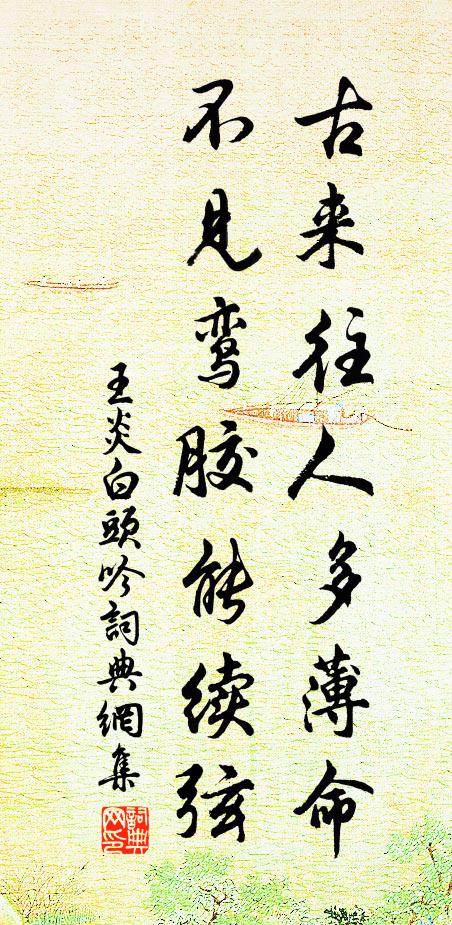 古来往人多薄命
不见鸾胶能续弦
王炎白頭吟詞典網集
詞典网印